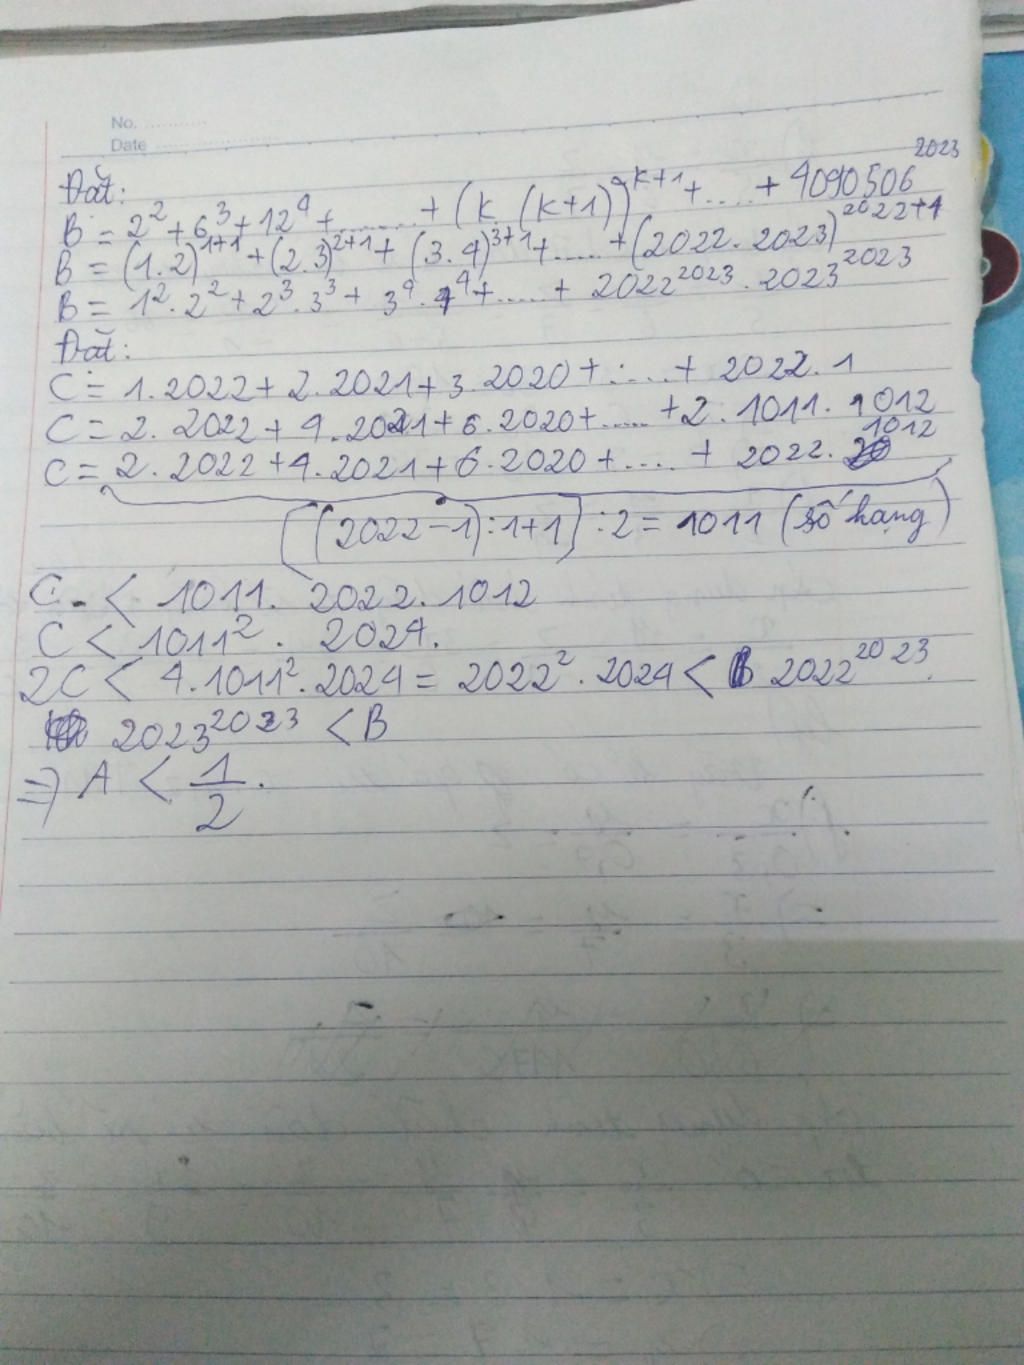 No. ............
Date ............
Đặt:
B = 2² + 6³ + 12⁴ + ....... + (k (k+1))^k+1 + ..... + 4090506^2023
B = (1.2)^1+1 + (2.3)^2+1 + (3.4)^3+1 + ..... + (2022.2023)^2022+1
B = 1².2² + 2³.3³ + 3⁴.4⁴ + ..... + 2022^2023.2023^2023
Đặt:
C = 1.2022 + 2.2021 + 3.2020 + ..... + 2022.1
C = 2.2022 + 4.2021 + 6.2020 + ..... + 2.1011.1012
C = 2.2022 + 4.2021 + 6.2020 + .... + 2022.1012
[(2022-1):1+1]:2 = 1011 (số hạng)
C < 1011. 2022.1012
C < 1011². 2024.
2C < 4.1011².2024 = 2022².2024 < 2022^2023.
2023^2023 < B
⇒ A < 1/2.